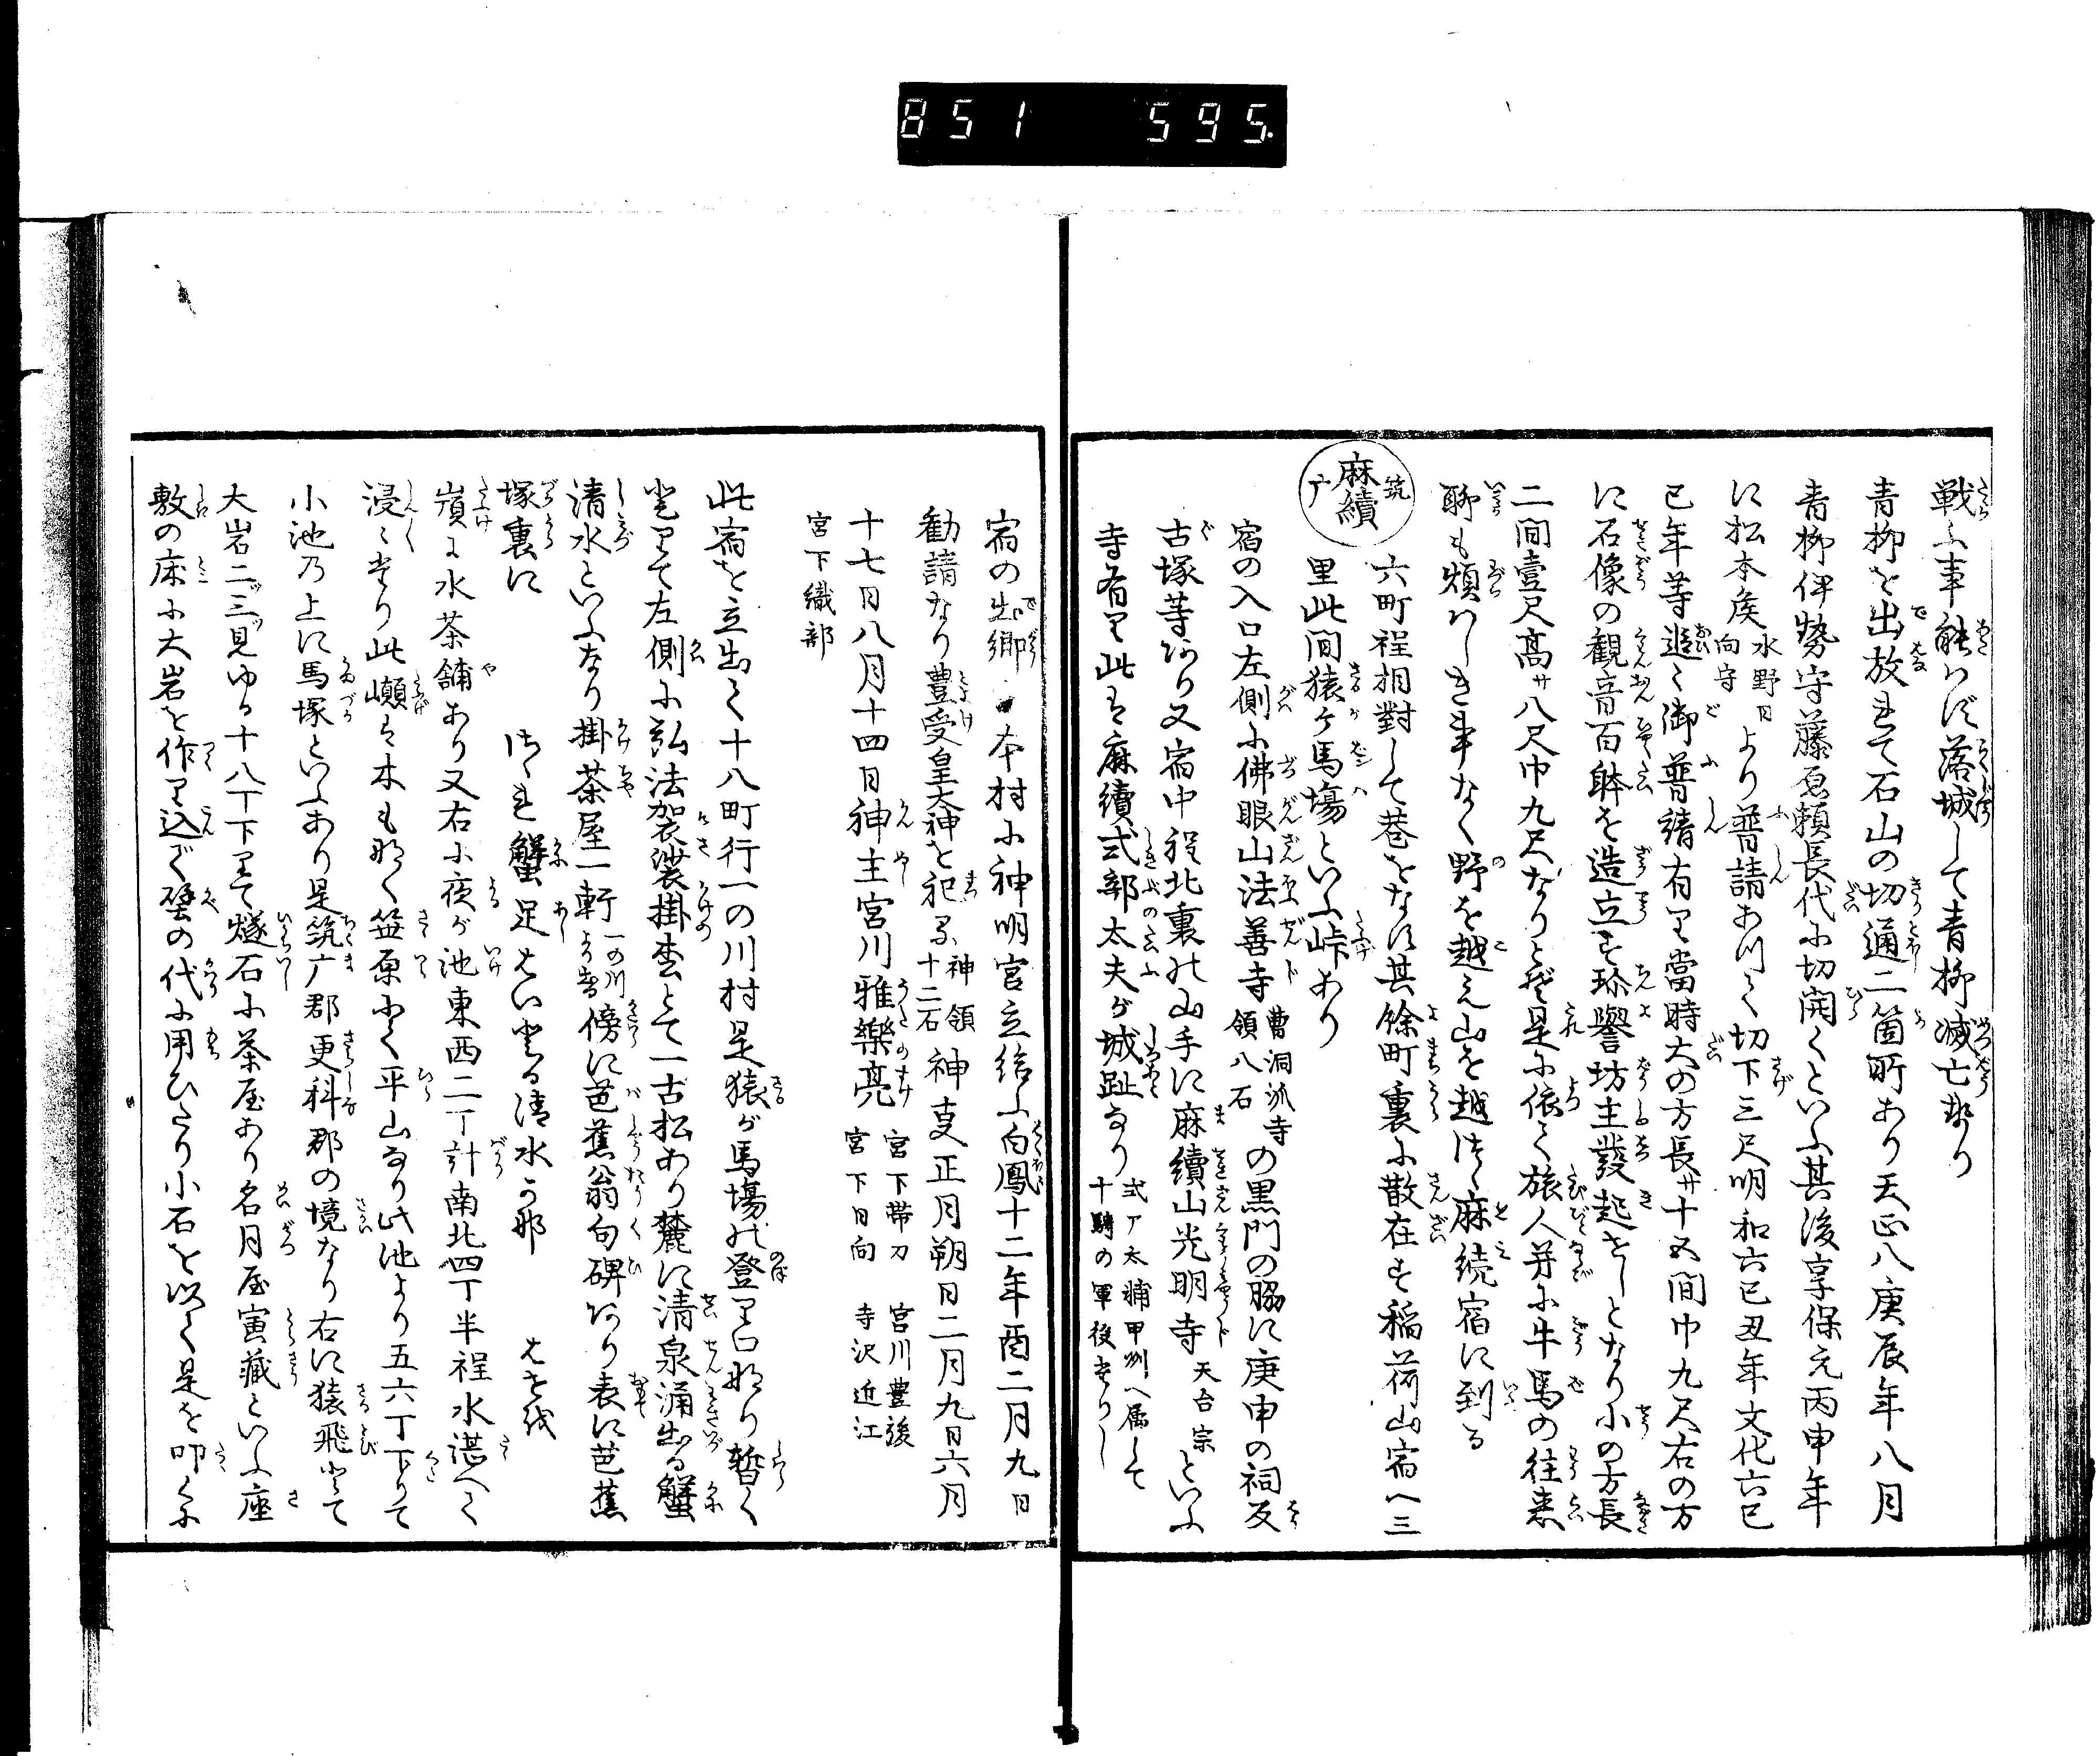 851 595
戦ふ事能ハず落城して青柳滅亡せり
青柳を出放れて石山の切通二箇所あり天正八庚辰年八月
青柳伊勢守藤原頼長代に切開くといふ其後享保元丙申年
に松本侯水野日向守より普請あつて切下三尺明和六己丑年文化六己
巳年等追々御普請有り當時大の方長サ十五間巾九尺右の方
に石像の観音百躰を造立す珍譽坊主發起せしとなり小の方長
二間壹尺髙サ八尺巾九尺なりとぞ是に依て旅人并に牛馬の往来
聊も煩ハしき事なく野を越え山を越け麻続宿に到る
筑广 麻績 六町程相對して巷をなす其餘町裏に散在す稲荷山宿へ三
里此間猿ケ馬場といふ峠あり
宿の入口左側に佛眼山法善寺曹洞派寺領八石の黒門の脇に庚申の祠及
古塚等あり又宿中程北裏の山手に麻續山光明寺天台宗といふ
寺有り此は麻續式部太夫が城趾なり式ア太輔甲州へ属して十騎の軍役なりし
宿の出郷本村に神明宮立給ふ白鳳十二年酉二月九日
勧請なり豊受皇大神を祀る神領十二石神㕝正月朔日二月九日六月
十七日八月十四日神主宮川雅樂亮 宮下帯刀 宮川豊後 宮下日向 寺沢近江
宮下織部
此宿を立出て十八町行一の川村是猿が馬場の登り口なり暫く
登りて左側に弘法袈裟掛松とて一古松あり麓に清泉涌出る蟹
清水といふなり掛茶屋一軒一の川より出傍に芭蕉翁句碑あり表に芭蕉
塚裏に 蟹足はい登る清水可那 はせを
嶺に水茶舗あり又右に夜が池東西二丁計南北四丁半程水湛へて
浸々たり此巓は木も無く笹原にて平山なり此池より五六丁下りて
小池乃上に馬塚といふあり是筑广郡更科郡の境なり右に猿飛とて
大岩二ツ三ツ見ゆる十八丁下りて燧石に茶屋あり名月屋寅藏といふ座
敷の床に大岩を作り込で壁の代に用ひたり小石を以て是を叩くに